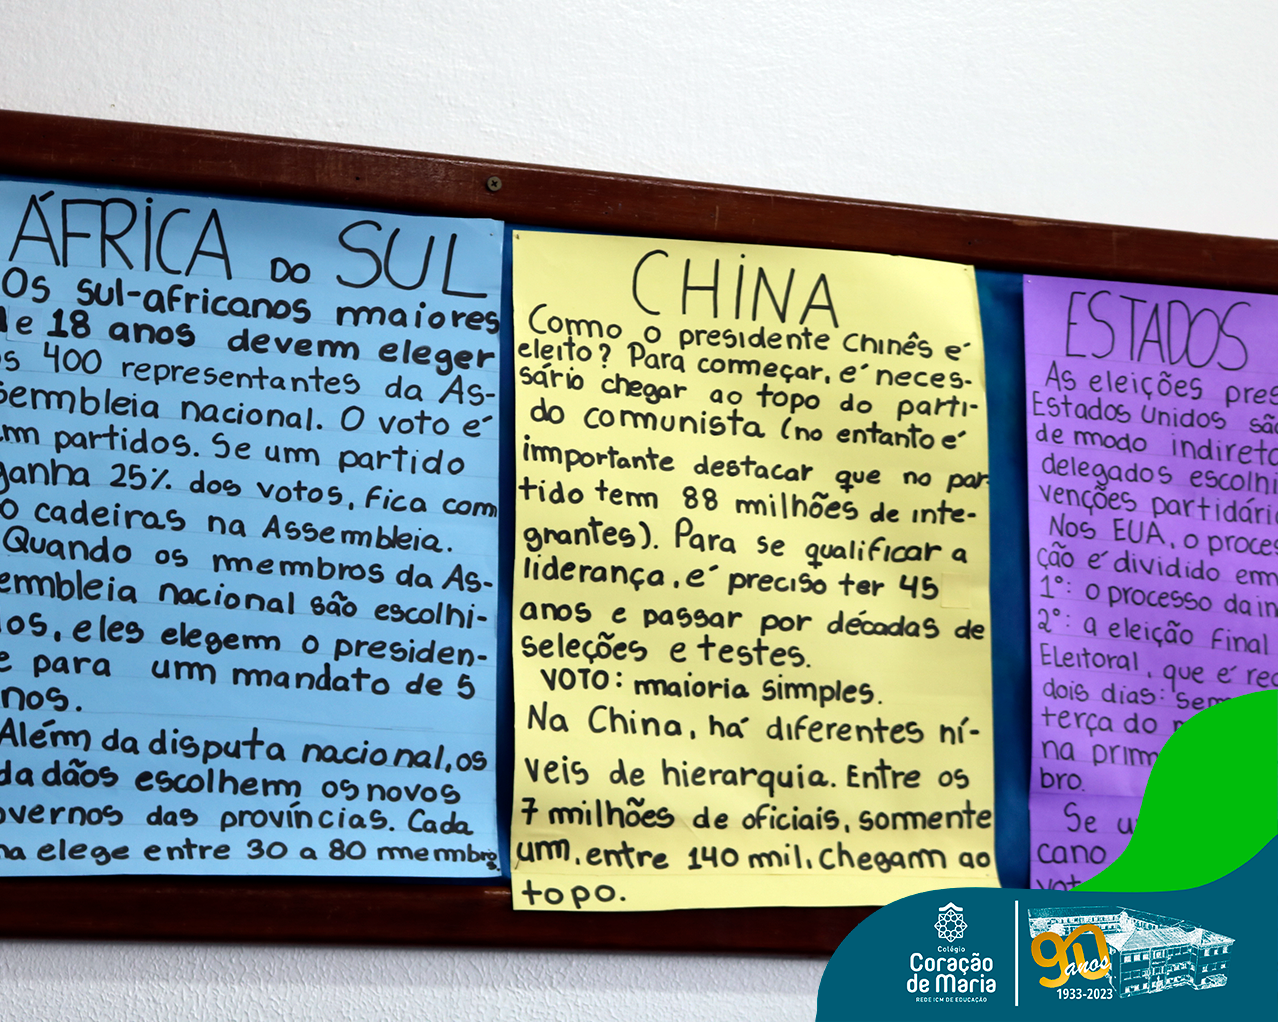 ÁFRICA DO SUL
Os sul-africanos maiores
de 18 anos devem eleger
os 400 representantes da As-
sembleia nacional. O voto é
em partidos. Se um partido
ganha 25% dos votos, fica com
cadeiras na Assembleia.
Quando os membros da As-
sembleia nacional são escolhi-
dos, eles elegem o presiden-
e para um mandato de 5
nos.
Além da disputa nacional, os
dadãos escolhem os novos
overnos das províncias. Cada
ma elege entre 30 a 80 membros.
CHINA
Como o presidente chinês é
eleito? Para começar, é neces-
sário chegar ao topo do parti-
do comunista (no entanto é
importante destacar que no par-
tido tem 88 milhões de inte-
grantes). Para se qualificar a
liderança, é preciso ter 45
anos e passar por décadas de
seleções e testes.
VOTO: maioria simples.
Na China, há diferentes ní-
veis de hierarquia. Entre os
7 milhões de oficiais, somente
um, entre 140 mil, chegam ao
topo.
ESTADOS
As eleições pres
Estados Unidos são
de modo indireto
delegados escolhi
venções partidári
Nos EUA, o proces
ção é dividido em
1°: o processo da in
2°: a eleição final
Eleitoral, que é rea
dois dias: sem
terça do
na prim
bro.
Se u
cano
vot
Colégio
Coração
de Maria
REDE ICM DE EDUCAÇÃO
90
anos
1933-2023